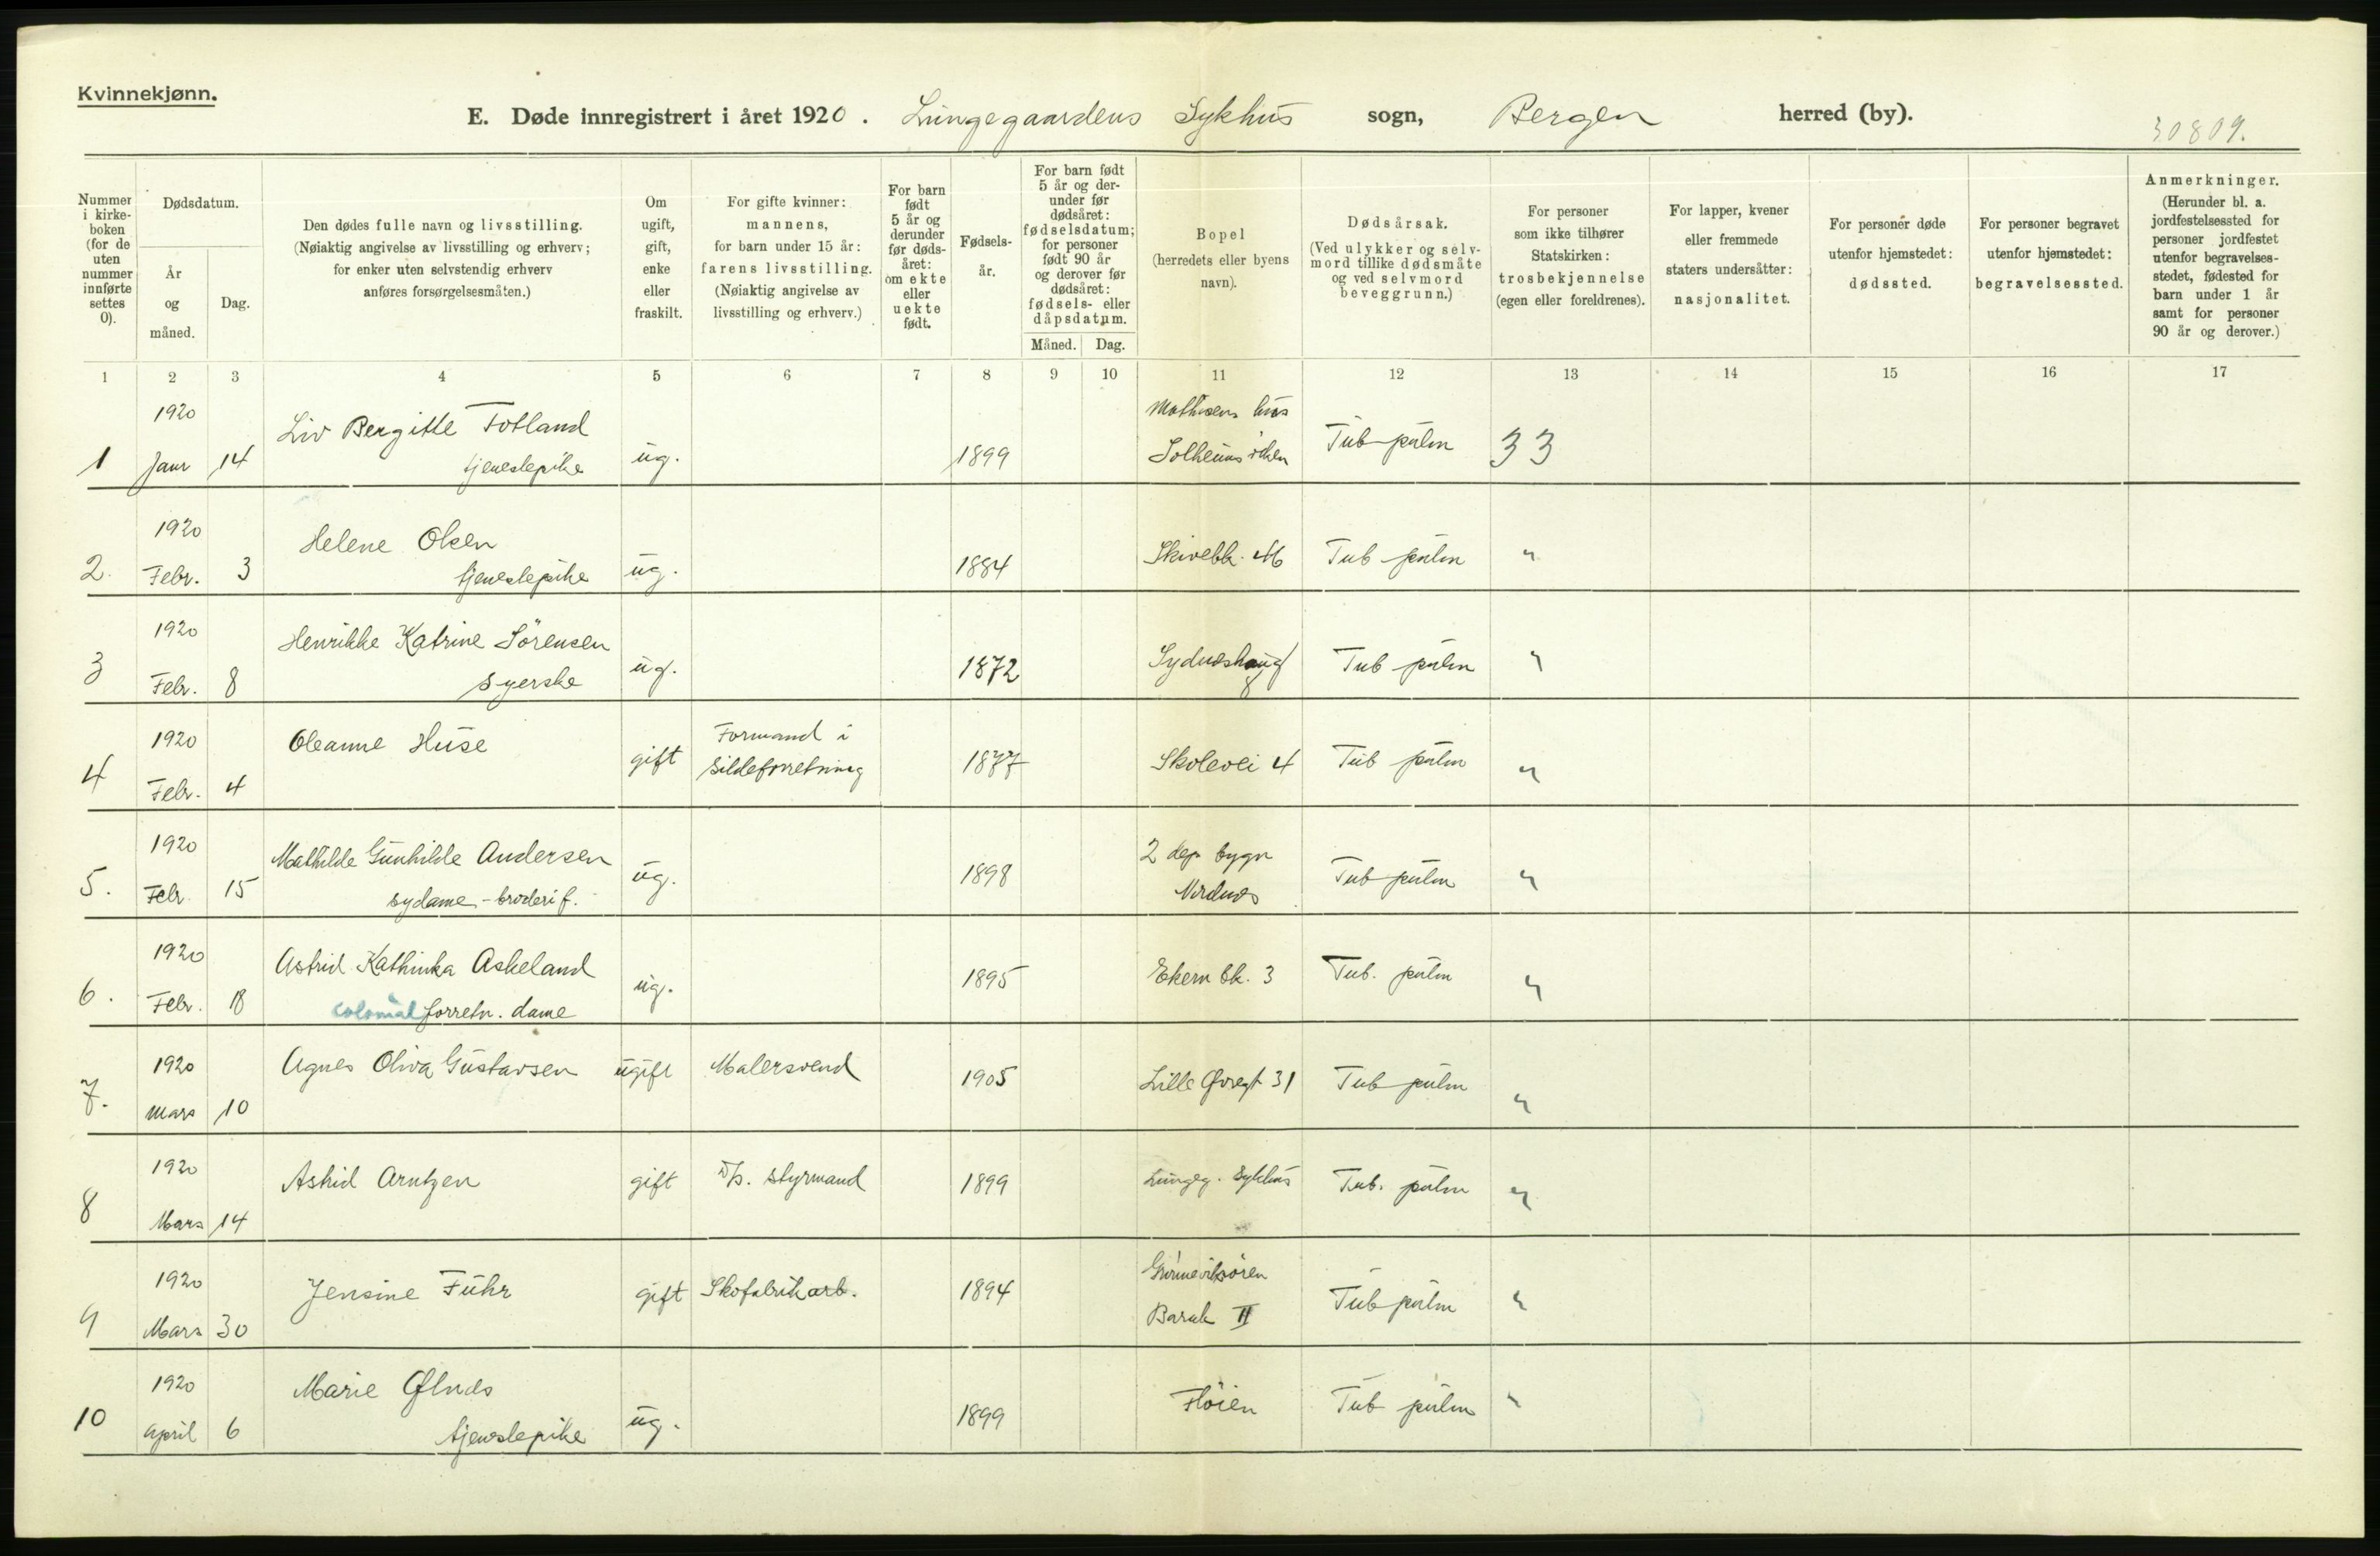 Kvinnekjønn.
E. Døde innregistrert i året 1920. Lungegaardens Sykhus sogn, Bergen herred (by).
30809.
Nummer i kirkeboken (for de uten nummer innførte settes 0).
Dødsdatum.
År og måned.
Dag.
Den dødes fulle navn og livsstilling.
(Nøiaktig angivelse av livsstilling og erhverv;
for enker uten selvstendig erhverv
anføres forsørgelsesmåten.)
Om ugift, gift, enke eller fraskilt.
For gifte kvinner:
mannens,
for barn under 15 år:
farens livsstilling.
(Nøiaktig angivelse av
livsstilling og erhverv.)
For barn født 5 år og derunder før dødsåret: om ekte eller uekte født.
Fødselsår.
For barn født 5 år og derunder før dødsåret: fødselsdatum; for personer født 90 år og derover før dødsåret: fødsels- eller dåpsdatum.
Måned. Dag.
Bopel
(herredets eller byens
navn).
Dødsårsak.
(Ved ulykker og selvmord tillike dødsmåte og ved selvmord beveggrunn.)
For personer
som ikke tilhører
Statskirken:
trosbekjennelse
(egen eller foreldrenes).
For lapper, kvener
eller fremmede
staters undersåtter:
nasjonalitet.
For personer døde
utenfor hjemstedet:
dødssted.
For personer begravet
utenfor hjemstedet:
begravelsessted.
Anmerkninger.
(Herunder bl. a.
jordfestelsessted for
personer jordfestet
utenfor begravelses-
stedet, fødested for
barn under 1 år
samt for personer
90 år og derover.)
1 2 3 4 5 6 7 8 9 10 11 12 13 14 15 16 17
1920 Liv Bergitte Totland Mathisens hus
1 Janr 14 tjenestepike ug. 1899 Solheimsviken Tub pulm 33
1920 Helene Olsen
2. Febr. 3 tjenestepike ug. 1884 Skivebk. 46 Tub pulm "
1920 Henrikke Katrine Sörensen
3 Febr. 8 syerske ug. 1872 Sydneshaug 8 Tub pulm "
1920 Oleanne Huse Formand i
4 Febr. 4 gift Sildeforretning 1877 Skolevei 4 Tub pulm "
1920 Mathilde Gunhilde Andersen 2 dep bygn
5. Febr 15 sydame - broderif. ug. 1898 Nordnes Tub pulm "
1920 Astrid Kathinka Askeland
6. Febr. 18 colonial forretn. dame ug. 1895 Ekern bk. 3 Tub. pulm "
1920 Agnes Oliva Gustavsen ugift Malersvend
7. Mars 10 1905 Lille Øvregt 31 Tub pulm "
1920 Astrid Arntzen gift D/s. styrmand
8 Mars 14 1899 Lungeg. Sykhus Tub. pulm "
1920 Jensine Führ gift Skofabrikarb.
9 Mars 30 1894 Grönneviksören Barak II Tub pulm "
1920 Marie Ølnes
10 April 6 tjenestepike ug. 1899 Flöien Tub pulm "